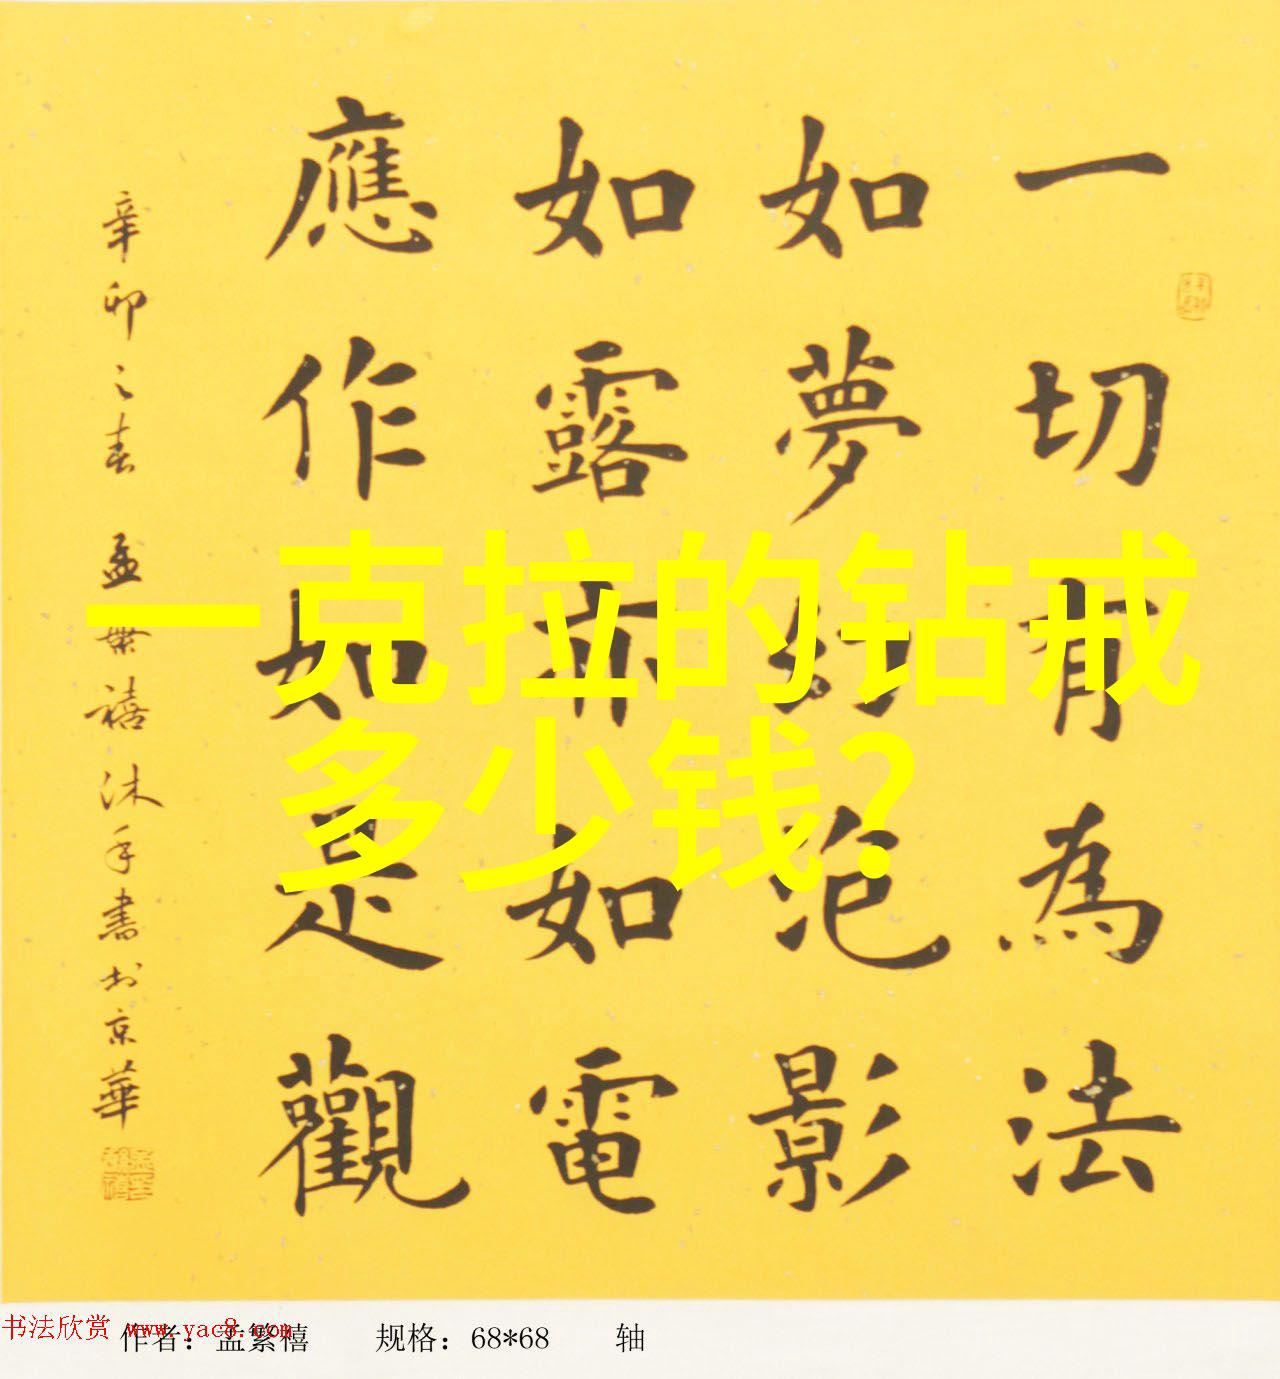 一切有為法
如夢幻泡影
如露亦如電
應作如是觀
辛卯之春 孟繁禧沐手書於京華
一克拉的钻戒
多少钱?
书法欣赏 www.yac8.com
作者：孟繁禧 规格：68*68 轴